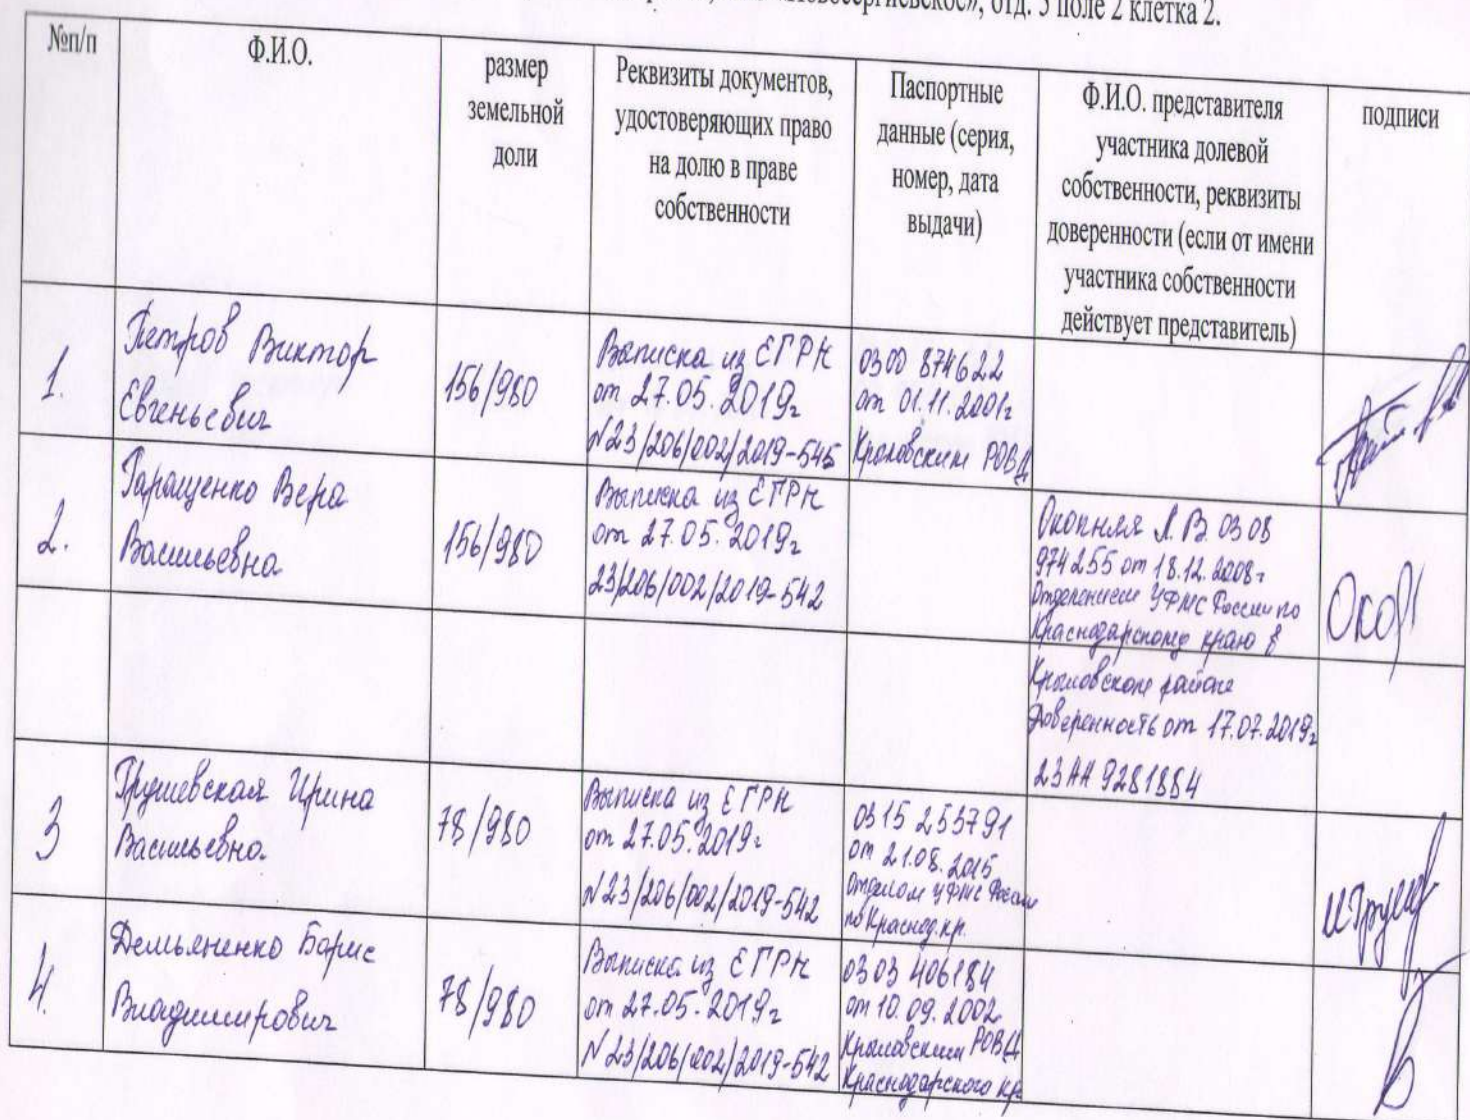 отд. 5 поле 2 клетка 2.
№п/п
Ф.И.О.
размер
земельной
доли
Реквизиты документов,
удостоверяющих право
на долю в праве
собственности
Паспортные
данные (серия,
номер, дата
выдачи)
Ф.И.О. представителя
участника долевой
собственности, реквизиты
доверенности (если от имени
участника собственности
действует представитель)
подписи
1.
Петров Виктор
Евгеньевич
156/980
Выписка из ЕГРН
от 27.05.2019г
N23/206/002/2019-545
0300 874622
от 01.11.2001г
Крыловским РОВД
2.
Таращенко Вера
Васильевна
156/980
Выписка из ЕГРН
от 27.05.2019г
23/206/002/2019-542
Окопная Л.В. 03 08
974255 от 18.12.2008г
Отделением УФМС России по
Краснодарскому краю в
Крыловском районе
Доверенность от 17.07.2019г
23АА 9281884
3
Грушевская Ирина
Васильевна
78/980
Выписка из ЕГРН
от 27.05.2019г
N23/206/002/2019-542
0315 253791
от 21.08.2015
отделом УФМС России
по Краснод.кр.
4.
Демьяненко Борис
Владимирович
78/980
Выписка из ЕГРН
от 27.05.2019г
N23/206/002/2019-542
0303 406184
от 10.09.2002
Крыловским РОВД
Краснодарского кр